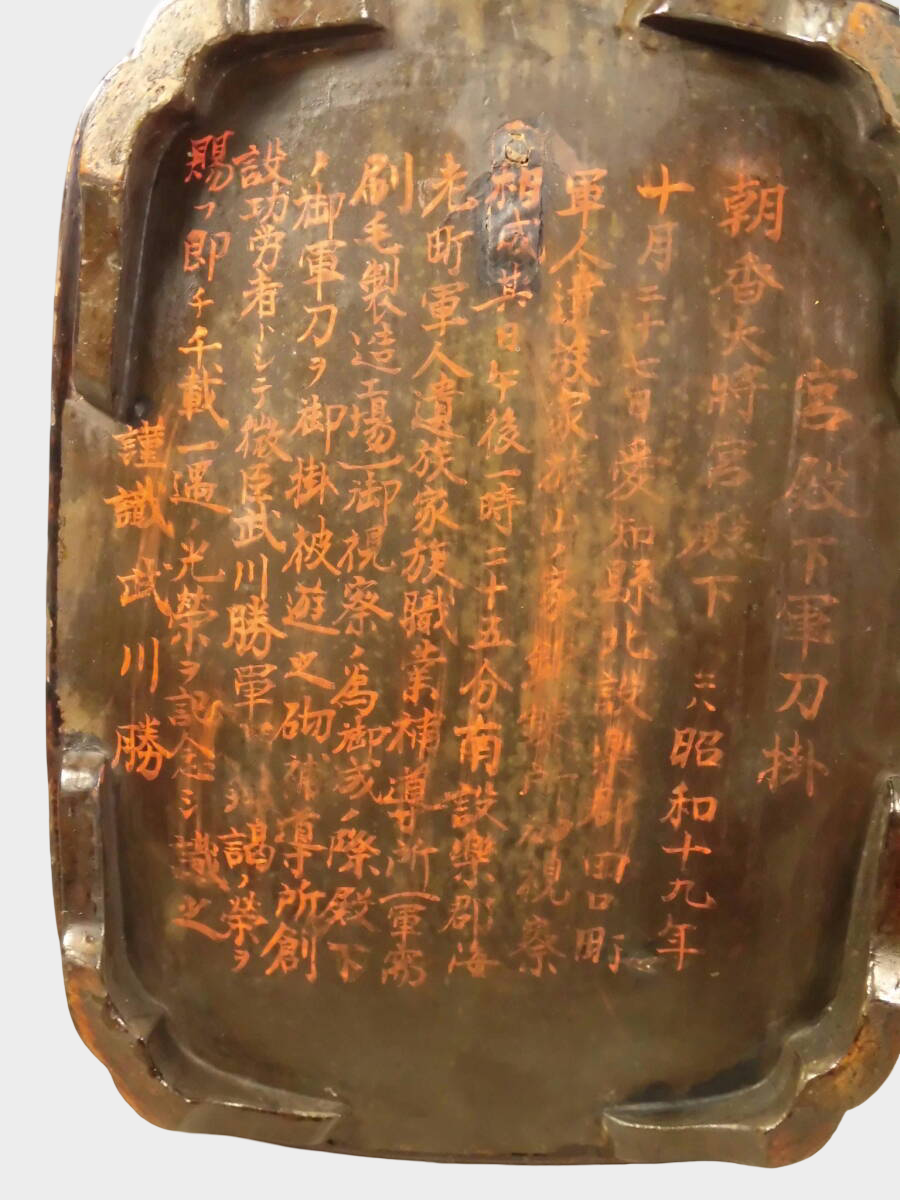 宮殿下軍刀掛
朝香大將宮殿下 昭和十九年
十月二十七日愛知縣北設樂郡田口町
軍人遺族家族山ノ家 所御視察
相成其日午後一時二十五分南設樂郡海
老町軍人遺族家族職業補導所(軍需
刷毛製造工場)御視察ノ為御成ノ際殿下
ノ御軍刀ヲ御掛被遊之砌補導所創
設功労者トシテ微臣武川勝軍 謁ノ榮ヲ
賜フ即チ千載一遇ノ光榮ヲ記念シ識之
謹識 武川勝